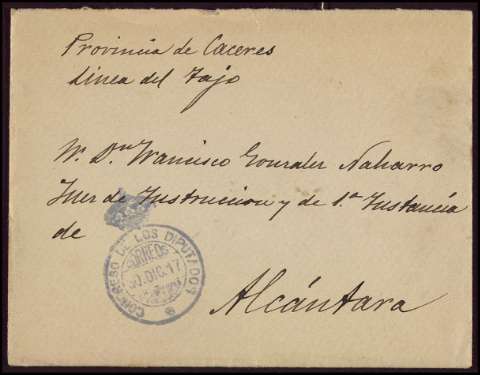 Provincia de Caceres
Linea del Tajo
Sr. Dn Francisco Gonzalez Naharro
Juez de Instruccion y de 1ª Instancia
de
Alcántara
CONGRESO DE LOS DIPUTADOS
CORREOS
DIC.17